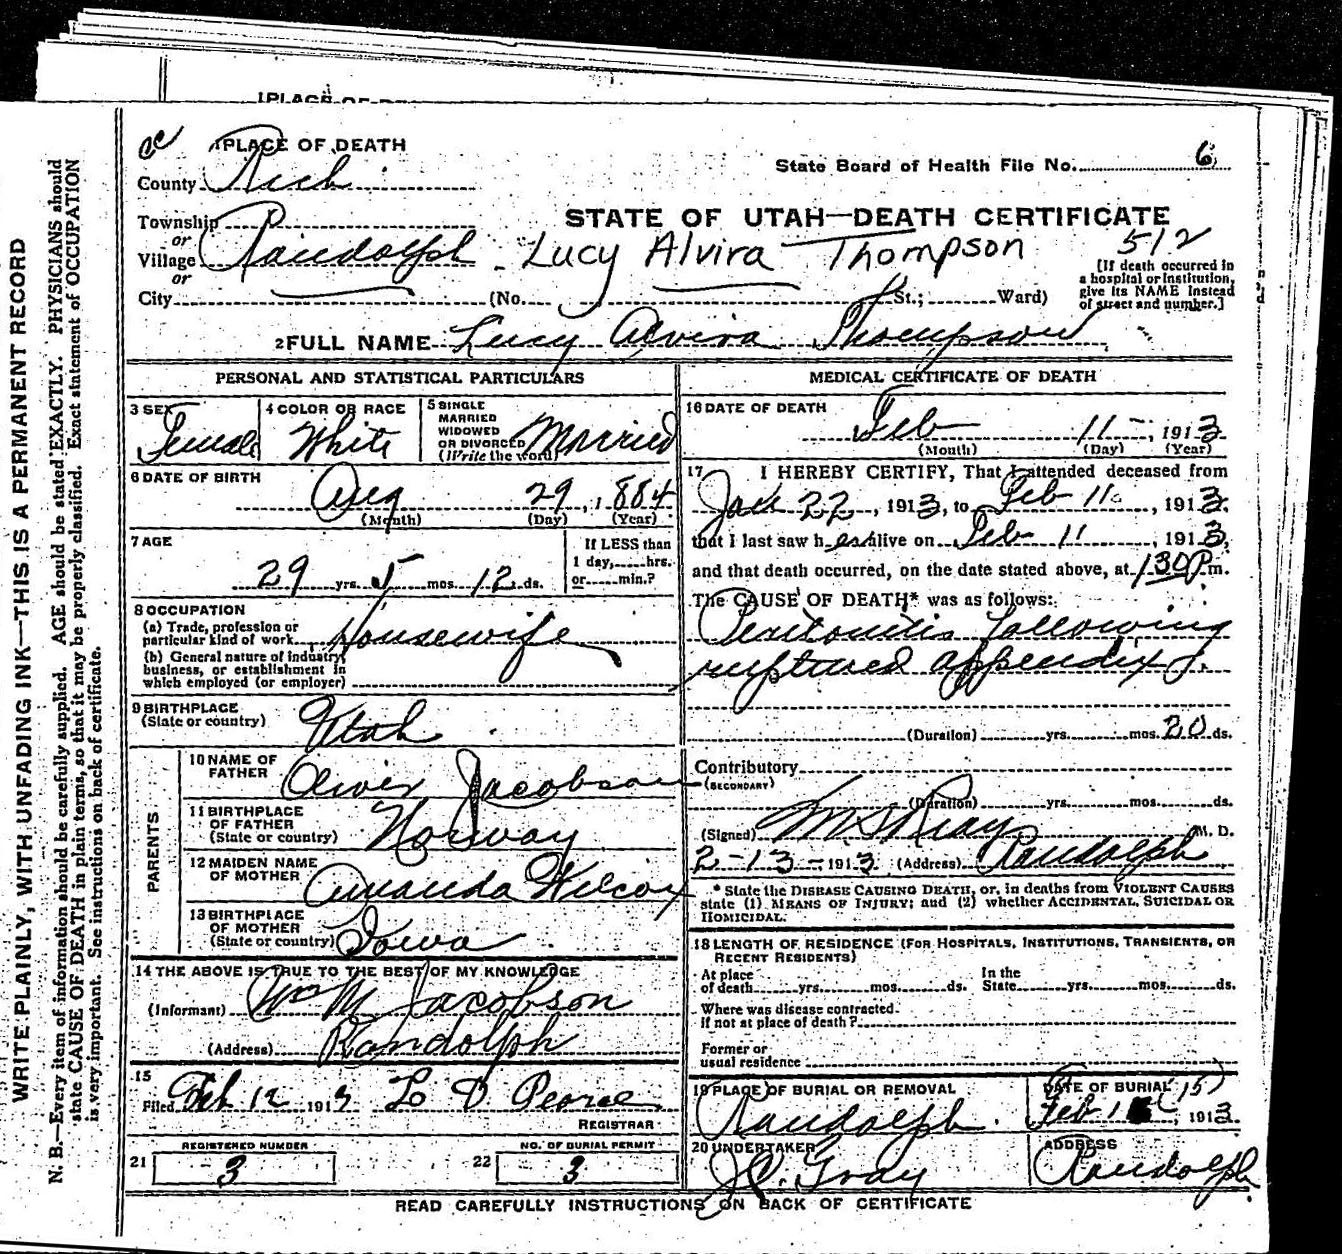 1 PLACE OF DEATH
County Rich
State Board of Health File No. 6
Township
or
Village Randolph
or
City (No. St.; Ward)
STATE OF UTAH—DEATH CERTIFICATE
Lucy Alvira Thompson
512
[If death occurred in
a hospital or institution,
give its NAME instead
of street and number.]
2 FULL NAME Lucy Alvira Thompson
PERSONAL AND STATISTICAL PARTICULARS
3 SEX
Female
4 COLOR OR RACE
White
5 SINGLE
MARRIED
WIDOWED
OR DIVORCED
(Write the word)
Married
6 DATE OF BIRTH
Aug 29, 1884
(Month) (Day) (Year)
7 AGE
29 yrs. 5 mos. 12 ds.
If LESS than
1 day, hrs.
or min.?
8 OCCUPATION
(a) Trade, profession or
particular kind of work Housewife
(b) General nature of industry,
business, or establishment in
which employed (or employer)
9 BIRTHPLACE
(State or country)
Utah
PARENTS
10 NAME OF
FATHER
Oliver Jacobson
11 BIRTHPLACE
OF FATHER
(State or country)
Norway
12 MAIDEN NAME
OF MOTHER
Amanda Wilcox
13 BIRTHPLACE
OF MOTHER
(State or country)
Iowa
14 THE ABOVE IS TRUE TO THE BEST OF MY KNOWLEDGE
(Informant) Wm M Jacobson
(Address) Randolph
15
Filed Feb 12 1913 Pearce
REGISTRAR
REGISTERED NUMBER
21 3
NO. OF BURIAL PERMIT
22 3
MEDICAL CERTIFICATE OF DEATH
16 DATE OF DEATH
Feb 11 -, 1913
(Month) (Day) (Year)
17 I HEREBY CERTIFY, That I attended deceased from
Jan 22, 1913, to Feb 11, 1913.
that I last saw her alive on Feb 11, 1913,
and that death occurred, on the date stated above, at 1 30 P.m.
The CAUSE OF DEATH* was as follows:
Peritonitis following
ruptured appendix.
(Duration) yrs. mos. 20 ds.
Contributory
(SECONDARY)
(Duration) yrs. mos. ds.
(Signed) M. D.
2-13-1913 (Address) Randolph
* State the DISEASE CAUSING DEATH, or, in deaths from VIOLENT CAUSES
state (1) MEANS OF INJURY; and (2) whether ACCIDENTAL, SUICIDAL OR
HOMICIDAL.
18 LENGTH OF RESIDENCE (FOR HOSPITALS, INSTITUTIONS, TRANSIENTS, OR
RECENT RESIDENTS)
At place
of death yrs. mos. ds.
In the
State yrs. mos. ds.
Where was disease contracted
if not at place of death?
Former or
usual residence
19 PLACE OF BURIAL OR REMOVAL
Randolph.
DATE OF BURIAL
15)
Feb 1 , 1913
20 UNDERTAKER
J.C. Gray
ADDRESS
Randolph
READ CAREFULLY INSTRUCTIONS ON BACK OF CERTIFICATE
WRITE PLAINLY, WITH UNFADING INK—THIS IS A PERMANENT RECORD
N. B.—Every item of information should be carefully supplied. AGE should be stated EXACTLY. PHYSICIANS should
state CAUSE OF DEATH in plain terms, so that it may be properly classified. Exact statement of OCCUPATION
is very important. See instructions on back of certificate.